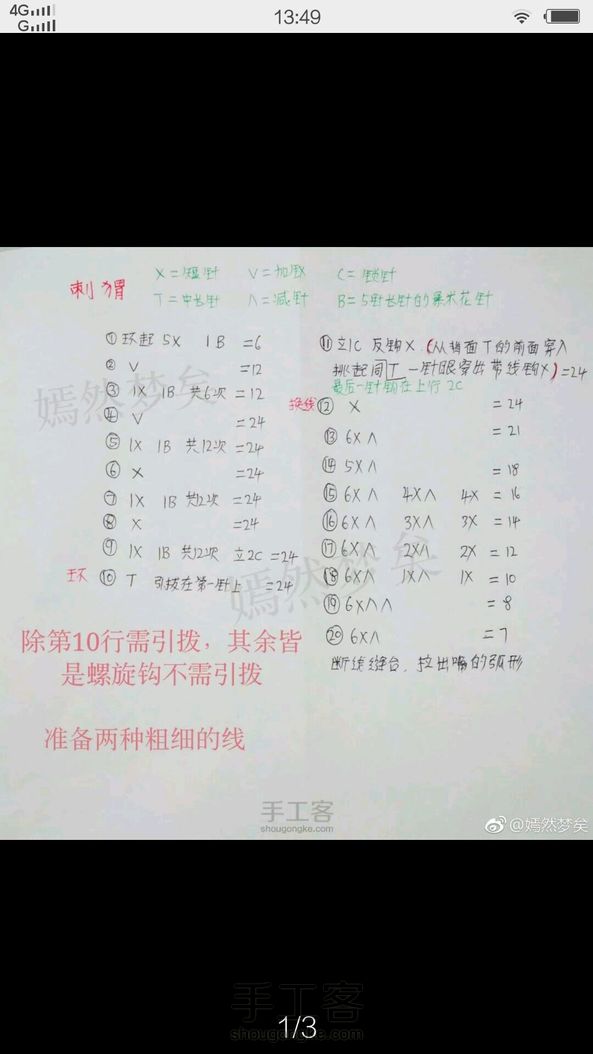 4G
G
13:49
刺猬
X=短针 V=加针 C=锁针
T=中长针 Λ=减针 B=5针长针的爆米花针
① 环起 5X 1B =6
② V =12
③ 1X 1B 共6次 =12
④ V =24
⑤ 1X 1B 共12次 =24
⑥ X =24
⑦ 1X 1B 共12次 =24
⑧ X =24
⑨ 1X 1B 共12次 立2C =24
⑩ T 引拔在第一针上 =24
⑪ 立1C 反钩X.(从背面T的前面穿入
挑起同T一针眼穿出带线钩X)=24
最后一针钩在上行2C
换线 ⑫ X =24
⑬ 6XΛ =21
⑭ 5XΛ =18
⑮ 6XΛ 4XΛ 4X =16
⑯ 6XΛ 3XΛ 3X =14
⑰ 6XΛ 2XΛ 2X =12
⑱ 6XΛ 1XΛ 1X =10
⑲ 6XΛΛ =8
⑳ 6XΛ =7
断线缝合,拉出嘴的弧形
除第10行需引拨,其余皆
是螺旋钩不需引拨
准备两种粗细的线
嫣然梦矣
嫣然梦矣
手工客
shougongke.com
@嫣然梦矣
手工客
shougongke.com
1/3